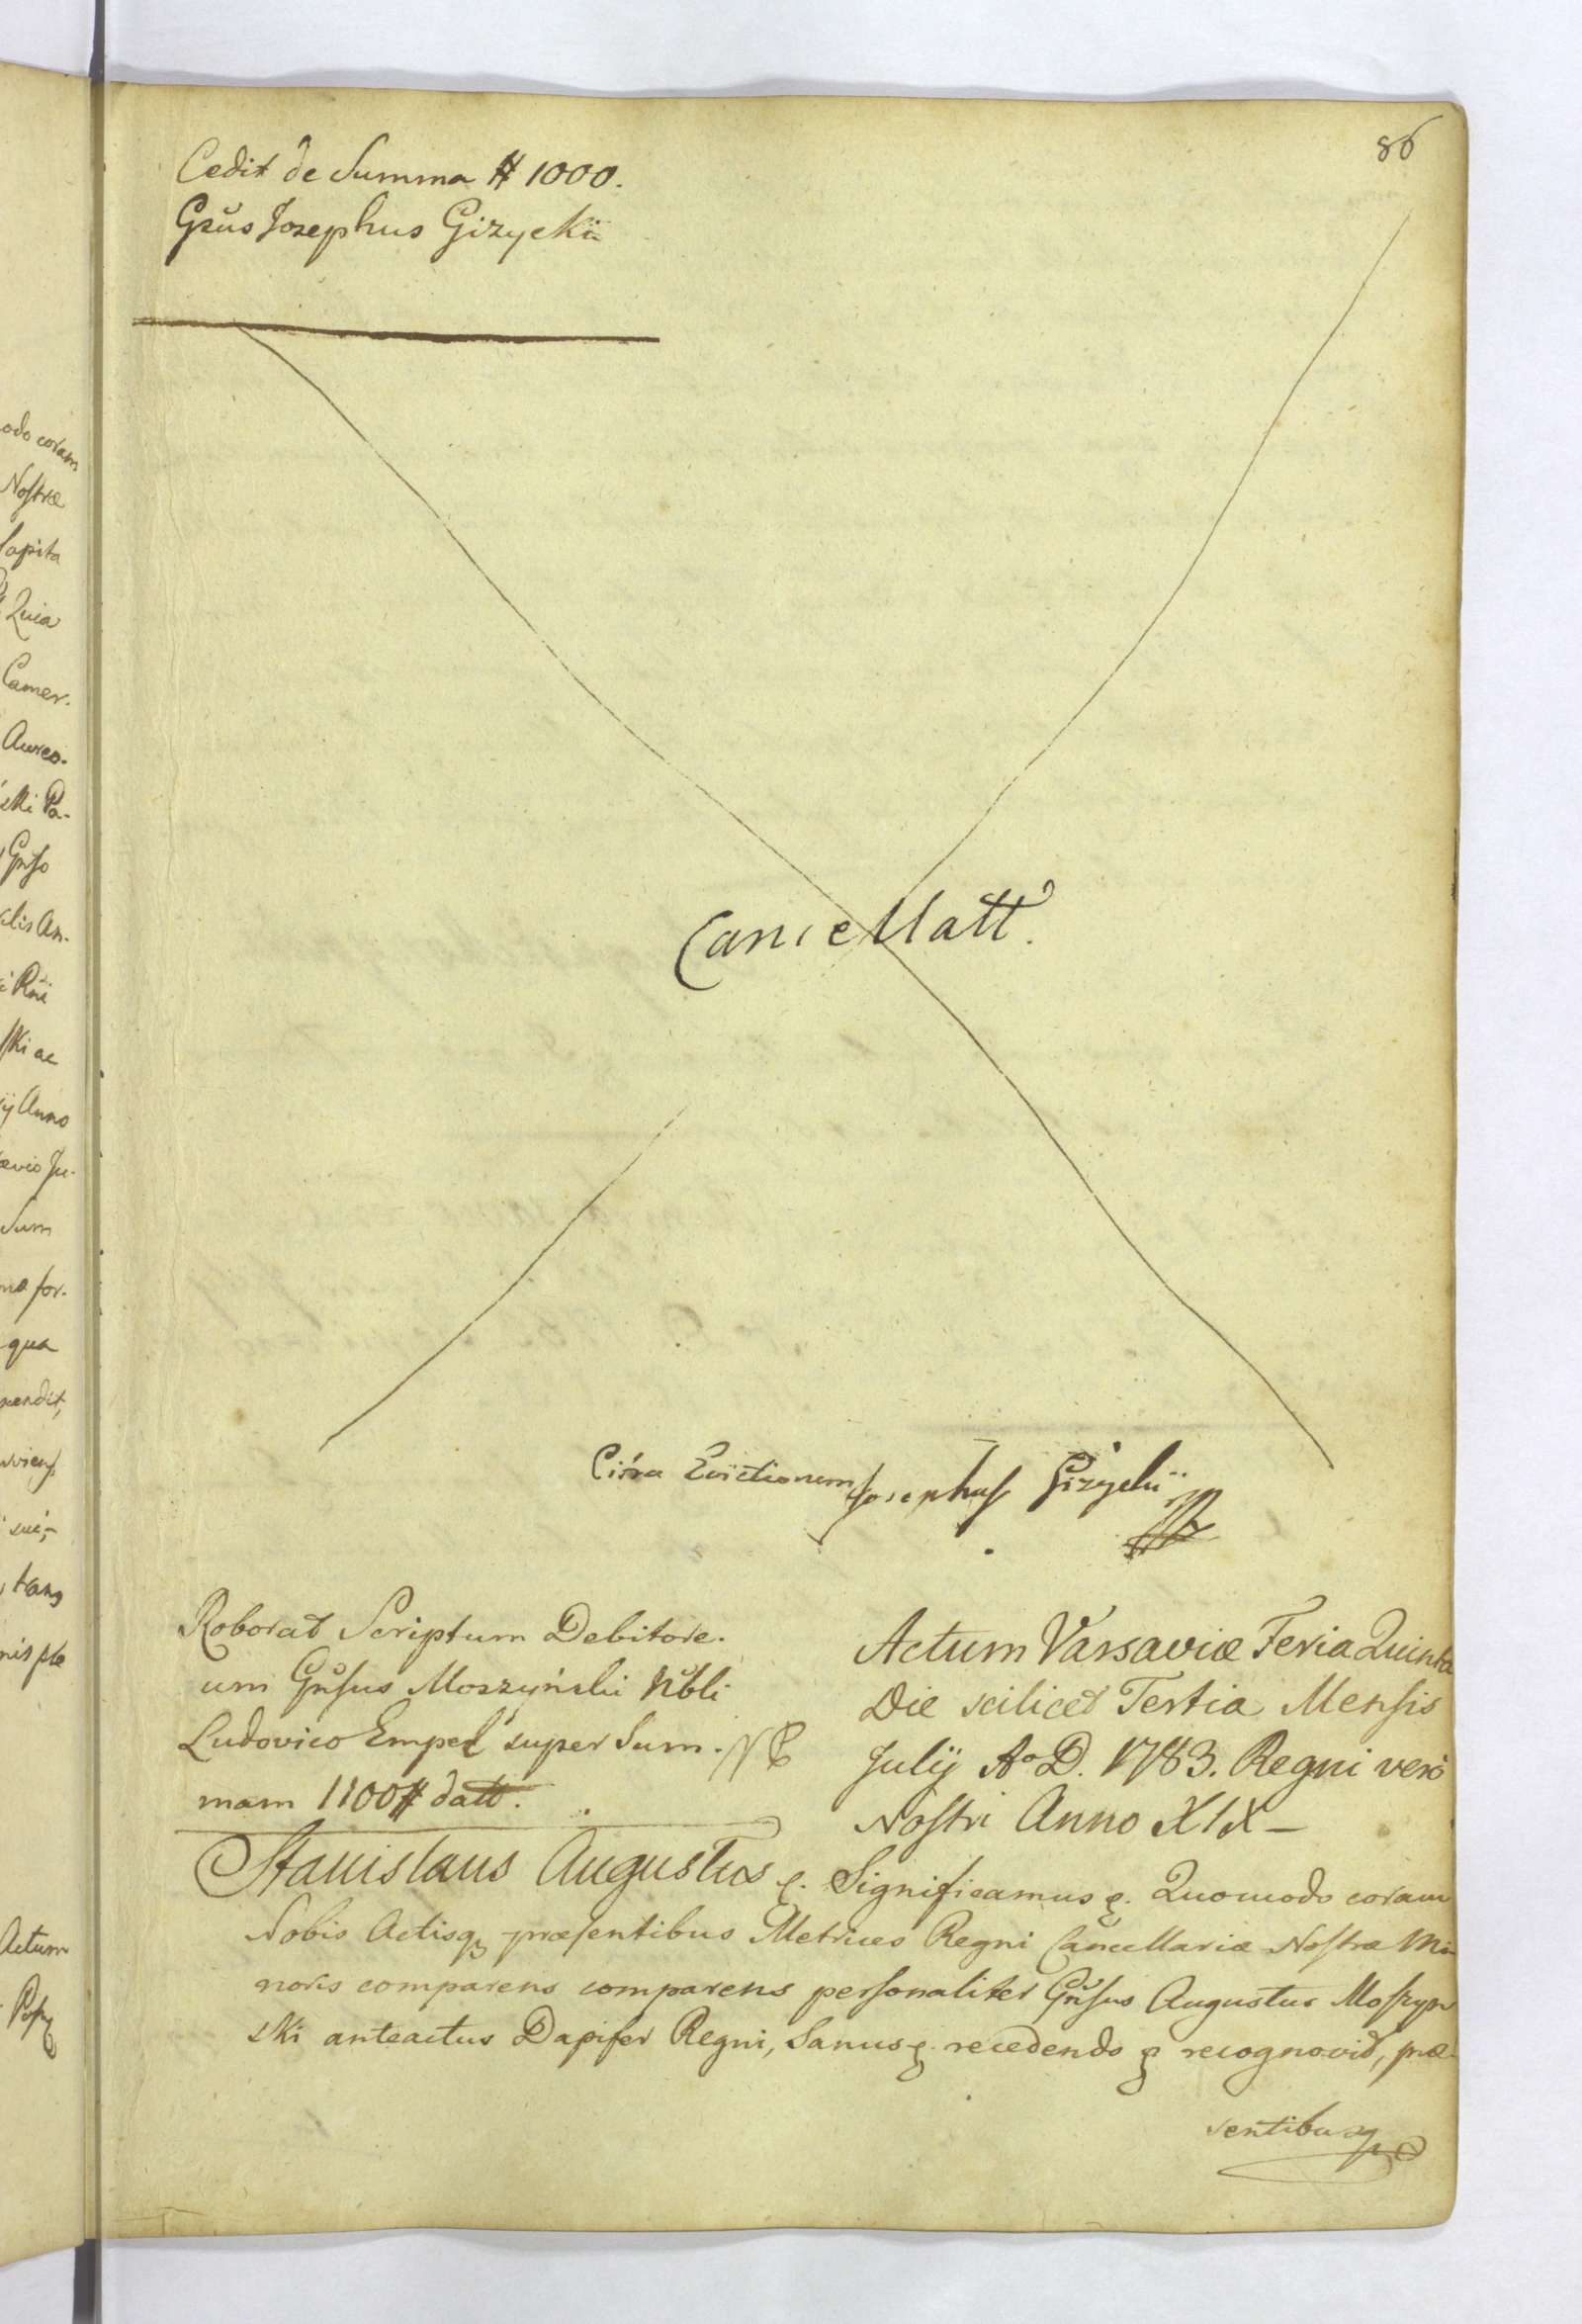 86
Cedit de Summa # 1000.
Grsus Josephus Gizyckii
Cancellatt.
Citra Evictionem Josephus Gizycki
Roborat Scriptum Debitore.
um Gnsus Moszyński Nbli
Ludovico Empel super Sum.
mam 1100 # datt.
Actum Varsaviæ Feria Quinta
Die scilicet Tertia Mensis
Julij A° D. 1783. Regni vero
Nostri Anno XIX
Stanislaus Augustus &. Significamus &. Quomodo coram
Nobis Actisq præsentibus Metrices Regni Cancellariæ Nostræ Mi-
noris comparens comparens personaliter Gnsus Augustus Moszyn
ski anteactus Dapifer Regni, Sanus &. recedendo & recognovit, præ-
sentibusq
odo coram
Nostræ
Capita
Quia
Camer.
Aureo-
ski Pa-
Gnso
alis An-
Rni
ski ac
ij Anno
ævio Ju-
Sum
næ for-
qua
pendit,
sui,
Actum